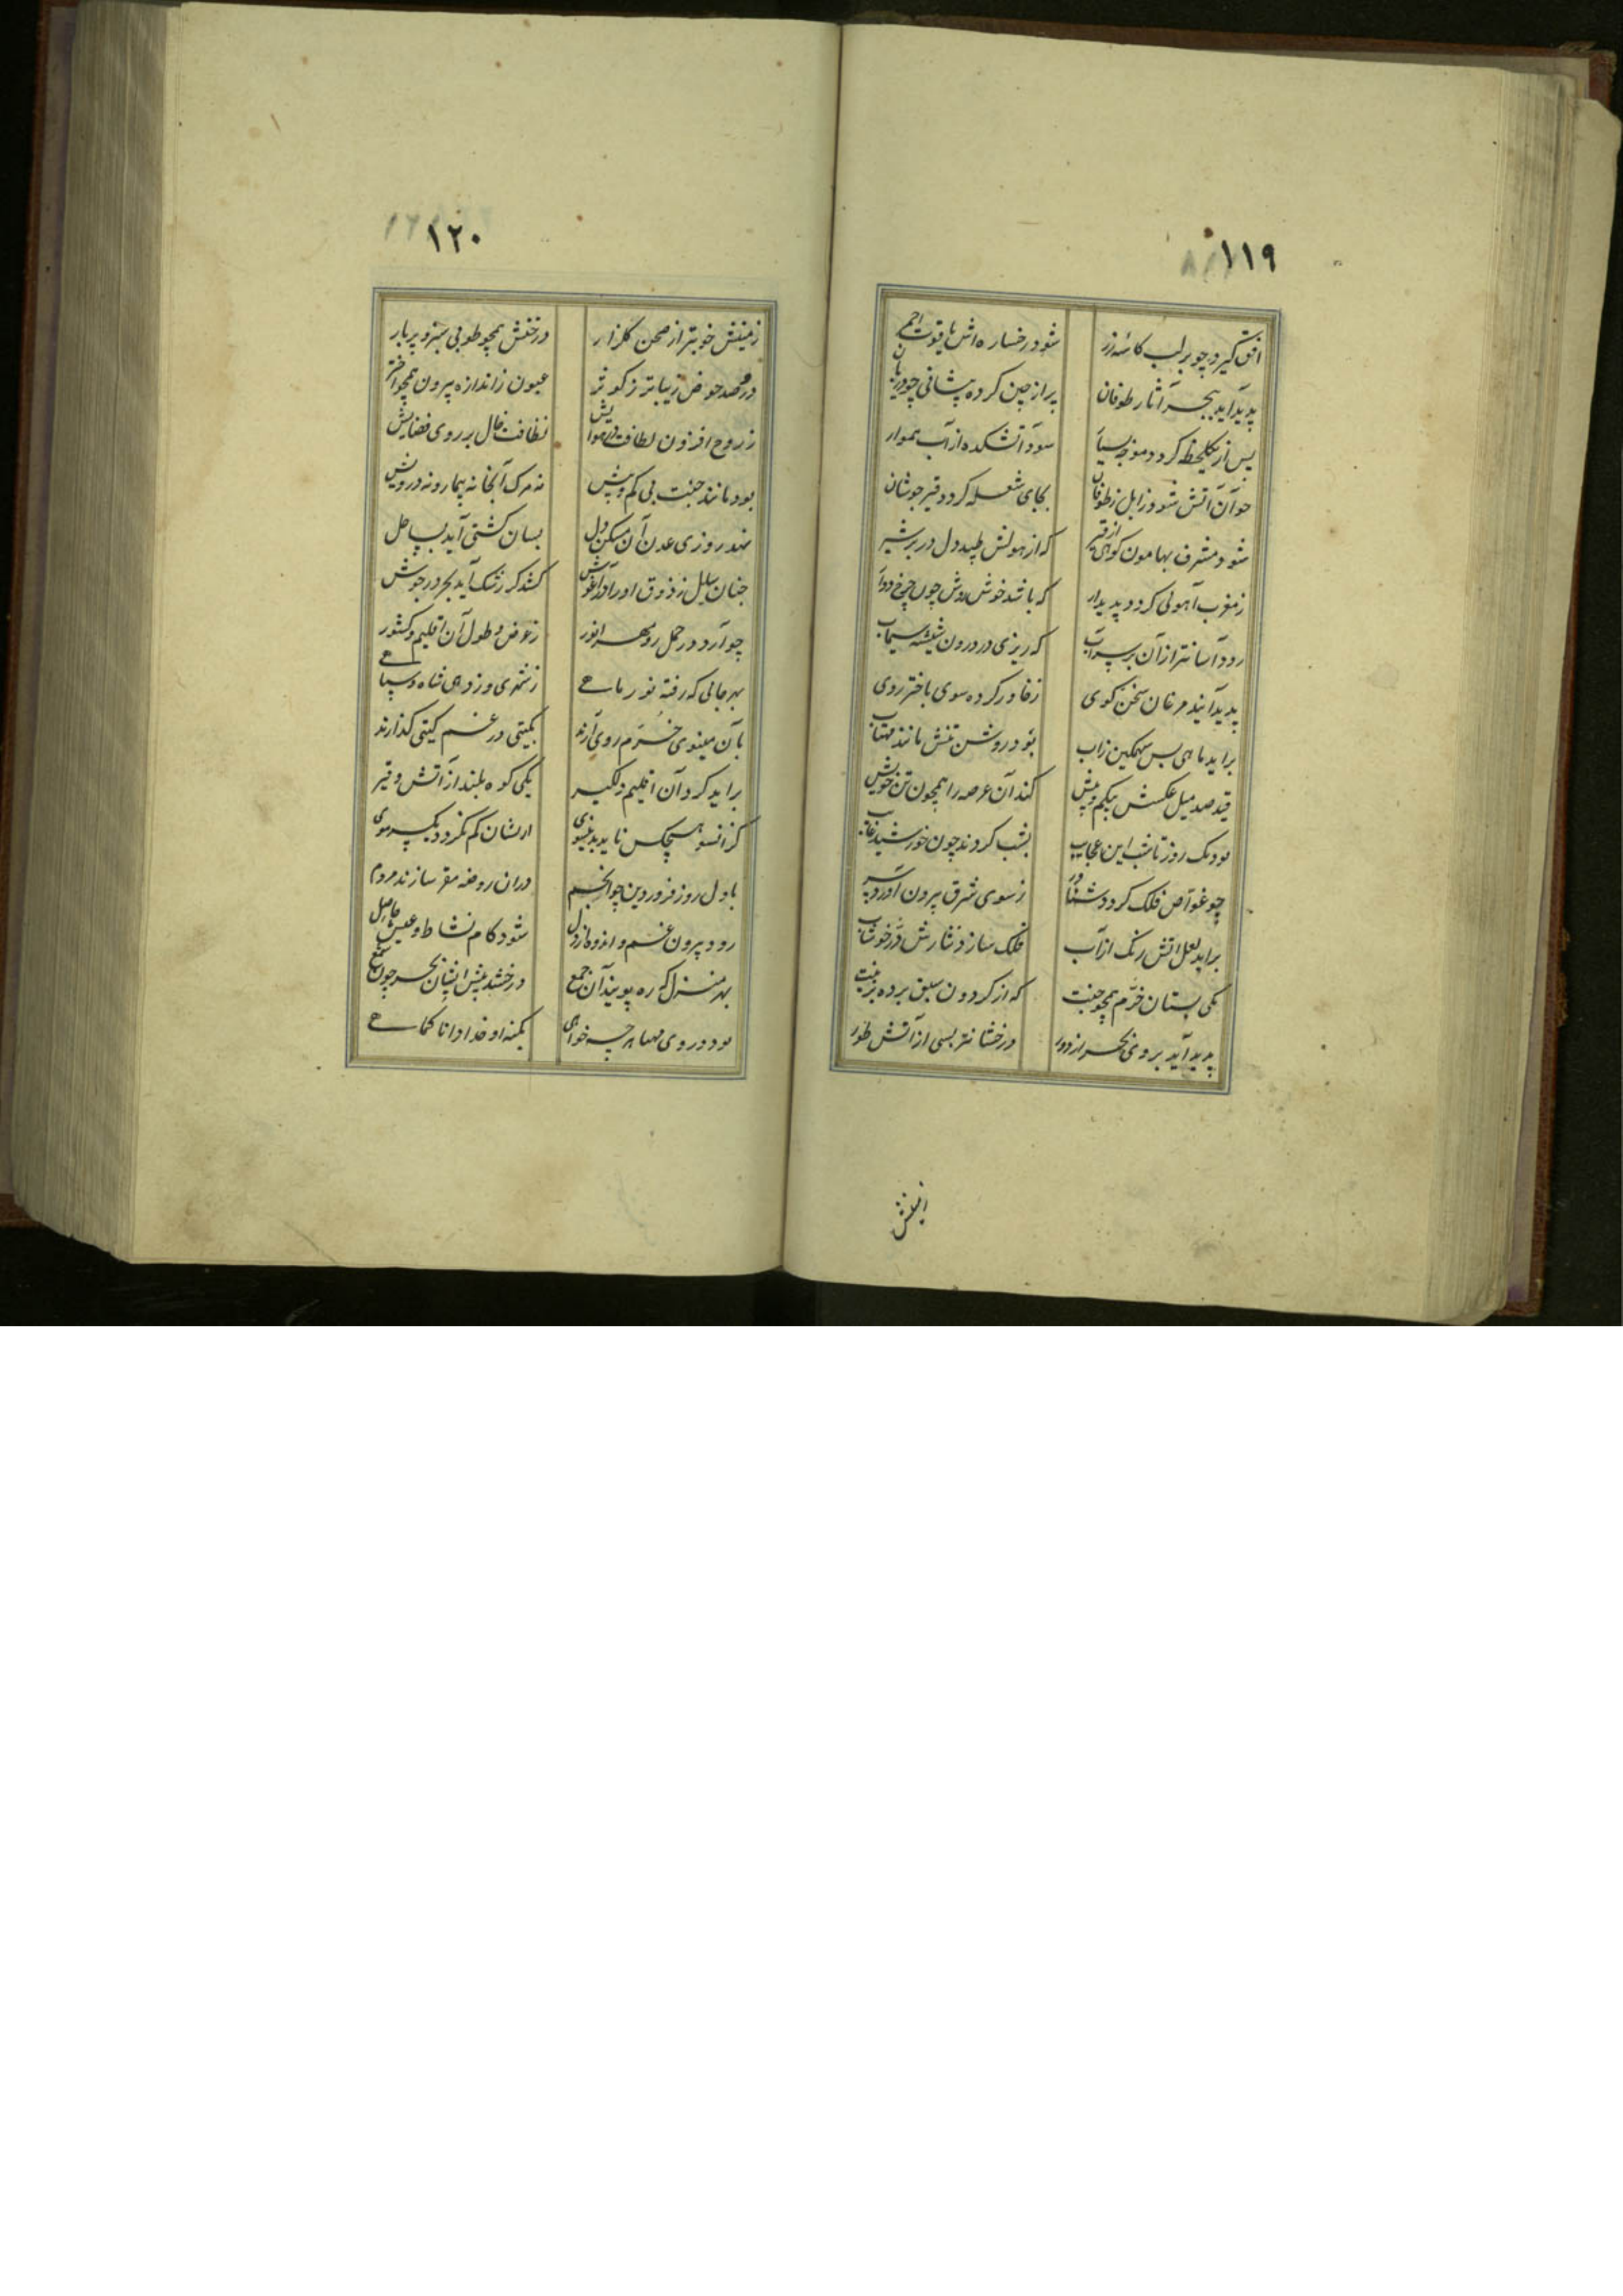 ١١٩
افق گیرد چو بر لب کاسه زر شود رخساره اش یاقوت احمر
پدید آید ببحر آثار طوفان پر از چین کرده پیشانی چو دربان
پس از یکلحظه گردد موجه سیار شود آتشکده از آب هموار
چو آن آتش شود زایل ز طوفان بجای شعله گردد قیر جوشان
شود مشرف بهامون کوهی از قیر که از هولش طپد دل در بر شیر
ز مغرب آهوئی گردد پدیدار که باشد خوش روش چون چرخ دوار
رود آسانتر از آن بر سر آب که ریزی در درون شیشه سیماب
پدید آیند مرغان سخن گوی ز خاور کرده سوی باختر روی
براید ماهی بس سهمگین زاب بود روشن تنش مانند مهتاب
فتد صد میل عکسش بیکم و بیش کند آن عرصه را همچون تن خویش
بود یک روز تا شب این عجایب بشب گردند چون خورشید غایب
چو غواص فلک گردد شناور ز سوی شرق بیرون آورد سر
براید لعل آتش رنگ از آب فلک سازد نثارش در خوشاب
یکی بستان خرم همچو جنت که از گردون سبق برده بزینت
پدید آید بروی بحر از دور درخشانتر بسی از آتش طور
زمینش
١٢٠
زمینش خوبتر از صحن گلزار درختش همچو طوبی سبز و پر بار
درو صد حوض زیباتر ز کوثر عیون ز اندازه بیرون همچو اختر
ز روح افزون لطافت در هوایش نظافت خال بر روی فضایش
بود مانند جنت بی کم و بیش نه مرگ آنجا نه بیمار و نه درویش
نهد روزی عدن آن مسکن دل بسان کشتی آید بساحل
چنان ساحل ز ذوق او را در آغوش کشد کز رشک آید بحر در جوش
چو آرد در حمل رو مهر انور ز عرض و طول آن اقلیم و کشور
بهر جائی که رفته نور ماهی ز شهری و ز دهی شاه و سپاهی
بآن مینوی خرم روی آرند بگیتی در غم گیتی گذارند
براید گرد آن اقلیم دلگیر یکی کوه بلند از آتش و قیر
کز انسو هیچکس ناید بدینسوی ازیشان کم نگردد یک سر موی
باول روز فروردین چو انجم دران روضه مقر سازند مردم
رود بیرون غم و اندوه از دل شود کام نشاط و عیش حاصل
بهر منزل که ره پویند آن جمع درخشد پیش ایشان بحر چون شمع
بود در وی مهیا هر چه خواهی بکنه او خدا دانا کماهی